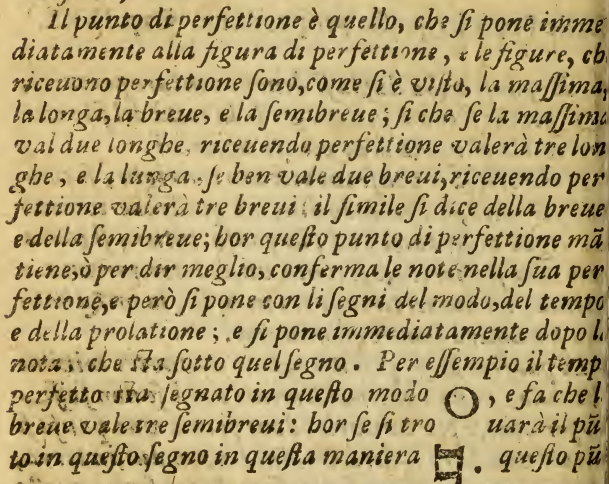 Il punto di perfettione è quello, che ſi pone imme
diatamente alla figura di perfettione, e le figure, ch
riceuono perfettione ſono, come ſi è viſto, la maſſima,
la longa, la breue, e la ſemibreue; ſi che ſe la maſſima
val due longhe, riceuendo perfettione valerà tre lon
ghe, e la lunga. ſe ben vale due breui, riceuendo per
fettione valerà tre breui: il ſimile ſi dice della breue
e della ſemibreue; hor queſto punto di perfettione mã
tiene, ò per dir meglio, conferma le note nella ſua per
fettione, e però ſi pone con li ſegni del modo, del tempo
e della prolatione; e ſi pone immediatamente dopo l
nota: che ſta ſotto quel ſegno. Per eſſempio il temp
perfetto ſta ſegnato in queſto modo O, e fa che l
breue vale tre ſemibreui: hor ſe ſi tro uarà il pũ
to in queſto ſegno in queſta maniera . queſto pũ